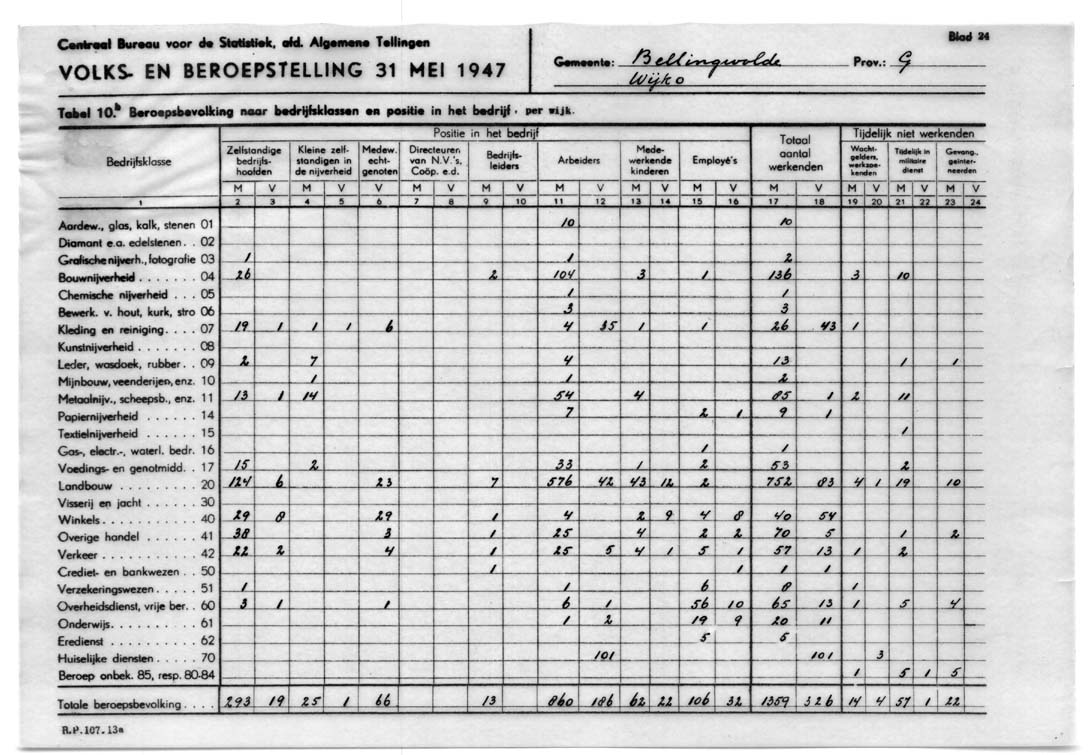 Centraal Bureau voor de Statistiek, afd. Algemene Tellingen
Blad 24
VOLKS- EN BEROEPSTELLING 31 MEI 1947
Gemeente: Bellingwolde Prov.: G
Wijk 0
Tabel 10.b Beroepsbevolking naar bedrijfsklassen en positie in het bedrijf, per wijk.
Bedrijfsklasse
Positie in het bedrijf
Totaal aantal werkenden
Tijdelijk niet werkenden
Zelfstandige bedrijfshoofden
Kleine zelfstandigen in de nijverheid
Medew. echtgenoten
Directeuren van N.V.'s, Coöp. e.d.
Bedrijfsleiders
Arbeiders
Medewerkende kinderen
Employé's
Wachtgelders, werkzoekenden
Tijdelijk in militaire dienst
Gevang., geïnterneerden
M V M V V M V M V M V M V M V M V M V M V M V
1 2 3 4 5 6 7 8 9 10 11 12 13 14 15 16 17 18 19 20 21 22 23 24
Aardew., glas, kalk, stenen 01 10 10
Diamant e.a. edelstenen . . 02
Grafische nijverh., fotografie 03 1 1 2
Bouwnijverheid . . . . . . . 04 26 2 104 3 1 136 3 10
Chemische nijverheid . . . 05 1 1
Bewerk. v. hout, kurk, stro 06 3 3
Kleding en reiniging . . . . 07 19 1 1 1 6 4 35 1 1 26 43 1
Kunstnijverheid . . . . . . . 08
Leder, wasdoek, rubber . . 09 2 7 4 13 1 1
Mijnbouw, veenderijen, enz. 10 1 1 2
Metaalnijv., scheepsb., enz. 11 13 1 14 54 4 85 1 2 11
Papiernijverheid . . . . . . 14 7 2 1 9 1
Textielnijverheid . . . . . . 15 1
Gas-, electr.-, waterl. bedr. 16 1 1
Voedings- en genotmidd. . 17 15 2 33 1 2 53 2
Landbouw . . . . . . . . . 20 124 6 23 7 576 42 43 12 2 752 83 4 1 19 10
Visserij en jacht . . . . . . 30
Winkels . . . . . . . . . . . 40 29 8 29 1 4 2 9 4 8 40 54
Overige handel . . . . . . . 41 38 3 1 25 4 2 2 70 5 1 2
Verkeer . . . . . . . . . . . 42 22 2 4 1 25 5 4 1 5 1 57 13 1 2
Crediet- en bankwezen . . 50 1 1 1 1
Verzekeringswezen . . . . . 51 1 1 6 8 1
Overheidsdienst, vrije ber. . 60 3 1 1 6 1 56 10 65 13 1 5 4
Onderwijs . . . . . . . . . . 61 1 2 19 9 20 11
Eredienst . . . . . . . . . . 62 5 5
Huiselijke diensten . . . . . 70 101 101 3
Beroep onbek. 85, resp. 80-84 1 5 1 5
Totale beroepsbevolking . . . . 293 19 25 1 66 13 860 186 62 22 106 32 1359 326 14 4 57 1 22
R.P.107.13a